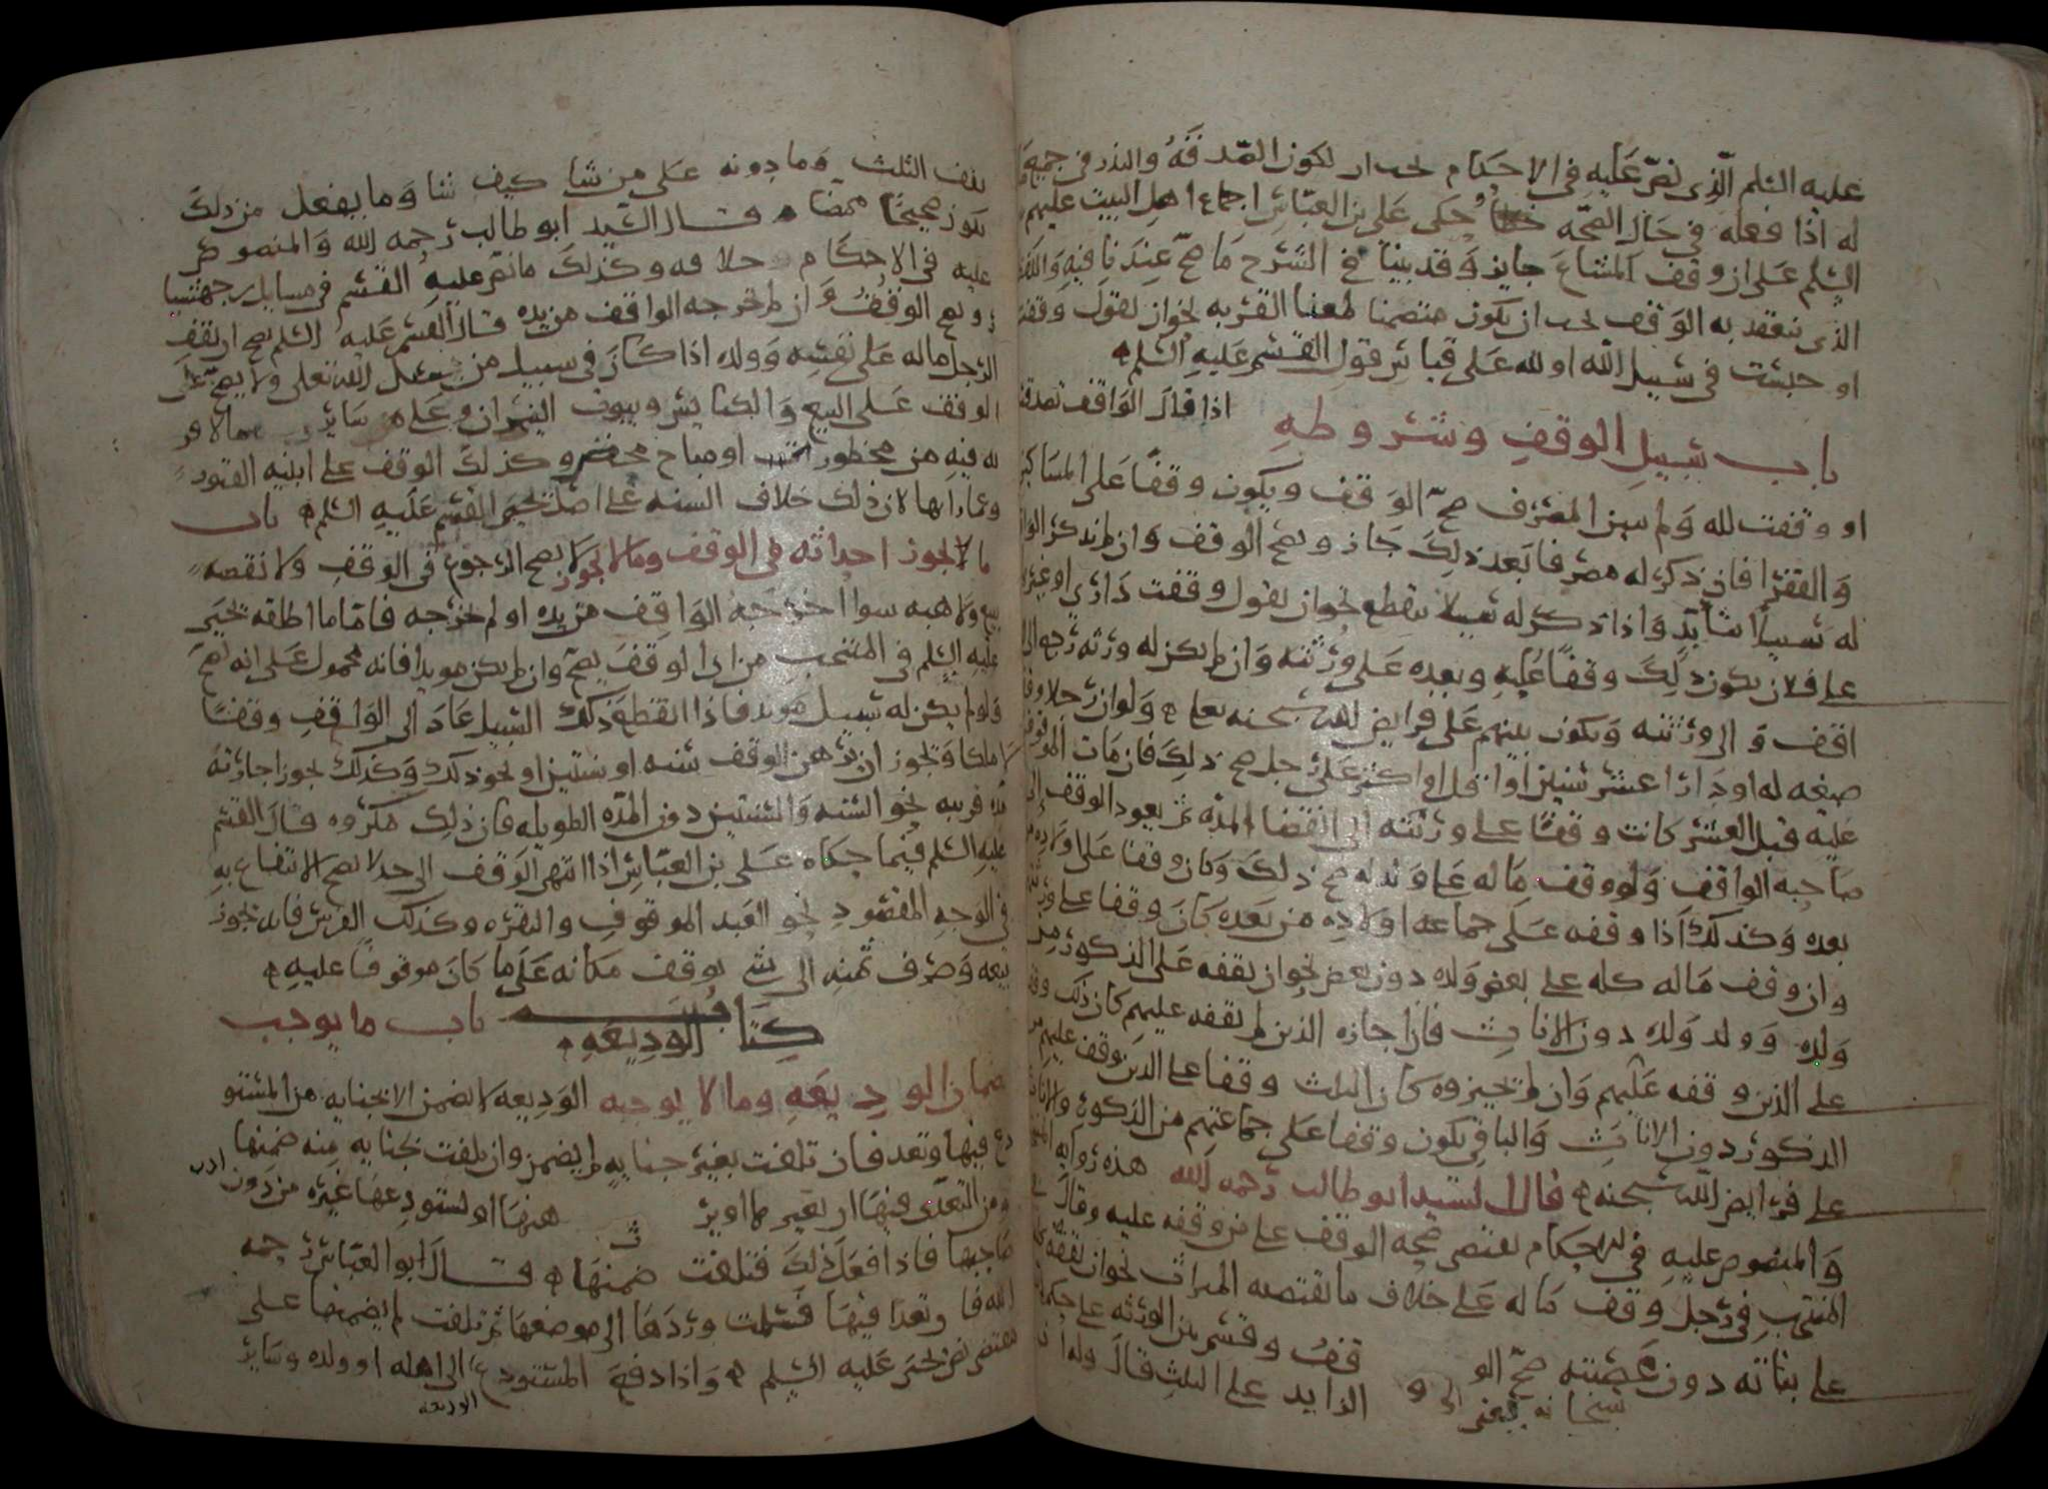 عليه السلم الذي نص عليه في الاحكام لكون الصدقه والنذر في جميع
له اذا فعله في حال الصحه حكى علي بن العباس اجماع اهل البيت عليهم
السلم على ان وقف المشاع جايز وقد بينا في الشرح ما صح عندنا فيه
الذي ينعقد به الوقف يجب ان يكون متضمنا لمعنا القربه نحو ان يقول وقفت
او حبست في سبيل الله او لله على قياس قول القسم عليه السلم
باب سبيل الوقف وشروطه اذا قال الواقف تصدقت
او وقفت لله ولم يبين المصرف صح الوقف ويكون وقفا على المساكين
والفقرا فان ذكر له مصرفا بعد ذلك جاز ويصح الوقف وان لم يذكر
له سبيلا واذا ذكر له سبيلا ينقطع نحو ان يقول وقفت داري او
على فلان يكون ذلك وقفا عليه وبعده على ورثته وان لم يكن له ورثه رجع الى
اقف والى ورثته ويكون بينهم على فرايض الله سبحنه ولو ان رجلا وقف
ضيعه له او دارا عشر سنين او اقل او اكثر على رجل صح ذلك فان مات الموقوف
عليه قبل العشر كانت وقفا على ورثته الى انقضا المده ثم يعود الوقف الى
صاحبه الواقف ولو وقف ماله على ولده صح ذلك وكان وقفا على اولاده
بعده وكذلك اذا وقفه على جماعه اولاده من بعده كان وقفا على
وان وقف ماله كله على بعض ولده دون بعض نحو ان يقفه على الذكور من
ولده وولد ولده دون الاناث فان اجازه الذين لم يقفه عليهم كان ذلك
على الذين وقفه عليهم وان لم يجيزوه كان الثلث وقفا على الذين وقف عليهم
الذكور دون الاناث والباقي يكون وقفا على جماعتهم من الذكور والاناث
على فرايض الله سبحنه قال السيد ابو طالب رحمه الله هذه روايه
والمنصوص عليه في الاحكام يقتضي صحه الوقف على من وقفه عليه وقال
المنتخب في رجل وقف ماله على خلاف ما يقتضيه الميراث نحو ان يقفه
على بناته دون عصبته صح الوقف وقسم بين الورثه على
الزايد على الثلث قال
يقف الثلث وما دونه على من شا كيف شا وما يفعل من ذلك
يكون صحيحا محضا قال السيد ابو طالب رحمه الله والمنصوص
عليه في الاحكام خلافه وكذلك ما نص عليه القسم في مسايل
ويصح الوقف وان لم يخرجه الواقف من يده قال القسم عليه السلم يصح ان يقف
الرجل ماله على نفسه وولده اذا كان في سبيل من سبل الله تعلى ولا يصح
الوقف على البيع والكنايس وبيوت النيران وعلى ساير
لله فيه من محظور او مباح محض وكذلك الوقف على ابنيه القبور
وعماراتها لان ذلك خلاف السنه على اصل يحيى القسم عليه السلم باب
ما لا يجوز احداثه في الوقف وما لا يجوز لا يصح الرجوع في الوقف ولا نقضه
بيع ولا هبه سوا اخرجه الواقف من يده او لم يخرجه فاما ما اطلقه يحيى
عليه السلم في المنتخب من ان الوقف يصح وان لم يكن موبدا فانه محمول على انه
ولو لم يكن له سبيل موبد فاذا انقطع ذلك السبيل عاد الى الواقف وقفا
لا ملكا ويجوز ان يرهن الوقف سنه او سنتين او نحو ذلك وكذلك يجوز اجارته
مده قريبه نحو السنه والسنتين دون المده الطويله فان ذلك مكروه قال القسم
عليه السلم فيما حكاه علي بن العباس اذا انتهى الوقف الى حد لا يصح الانتفاع به
في الوجه المقصود نحو العبد الموقوف والبقره وكذلك الفرس فانه يجوز
بيعه وصرف ثمنه الى شي يوقف مكانه على ما كان موقوفا عليه
كتاب الوديعه باب ما يوجب
ضمان الوديعه وما لا يوجبه الوديعه لا تضمن الا بجنايه من المستو
دع فيها وتعد فان تلفت بغير جنايه لم يضمن وان تلفت بجنايه منه ضمنها
ومن التعدي فيها ان او يستودعها غيره من دون اذن
صاحبها فاذا فعل ذلك فتلفت ضمنها قال ابو العباس رحمه
الله وتعدا فيها فسلمت وردها الى موضعها ثم تلفت لم يضمنها على
مقتضى نص يحيى عليه السلم واذا دفع المستودع الى اهله او ولده وساير
الوديعه